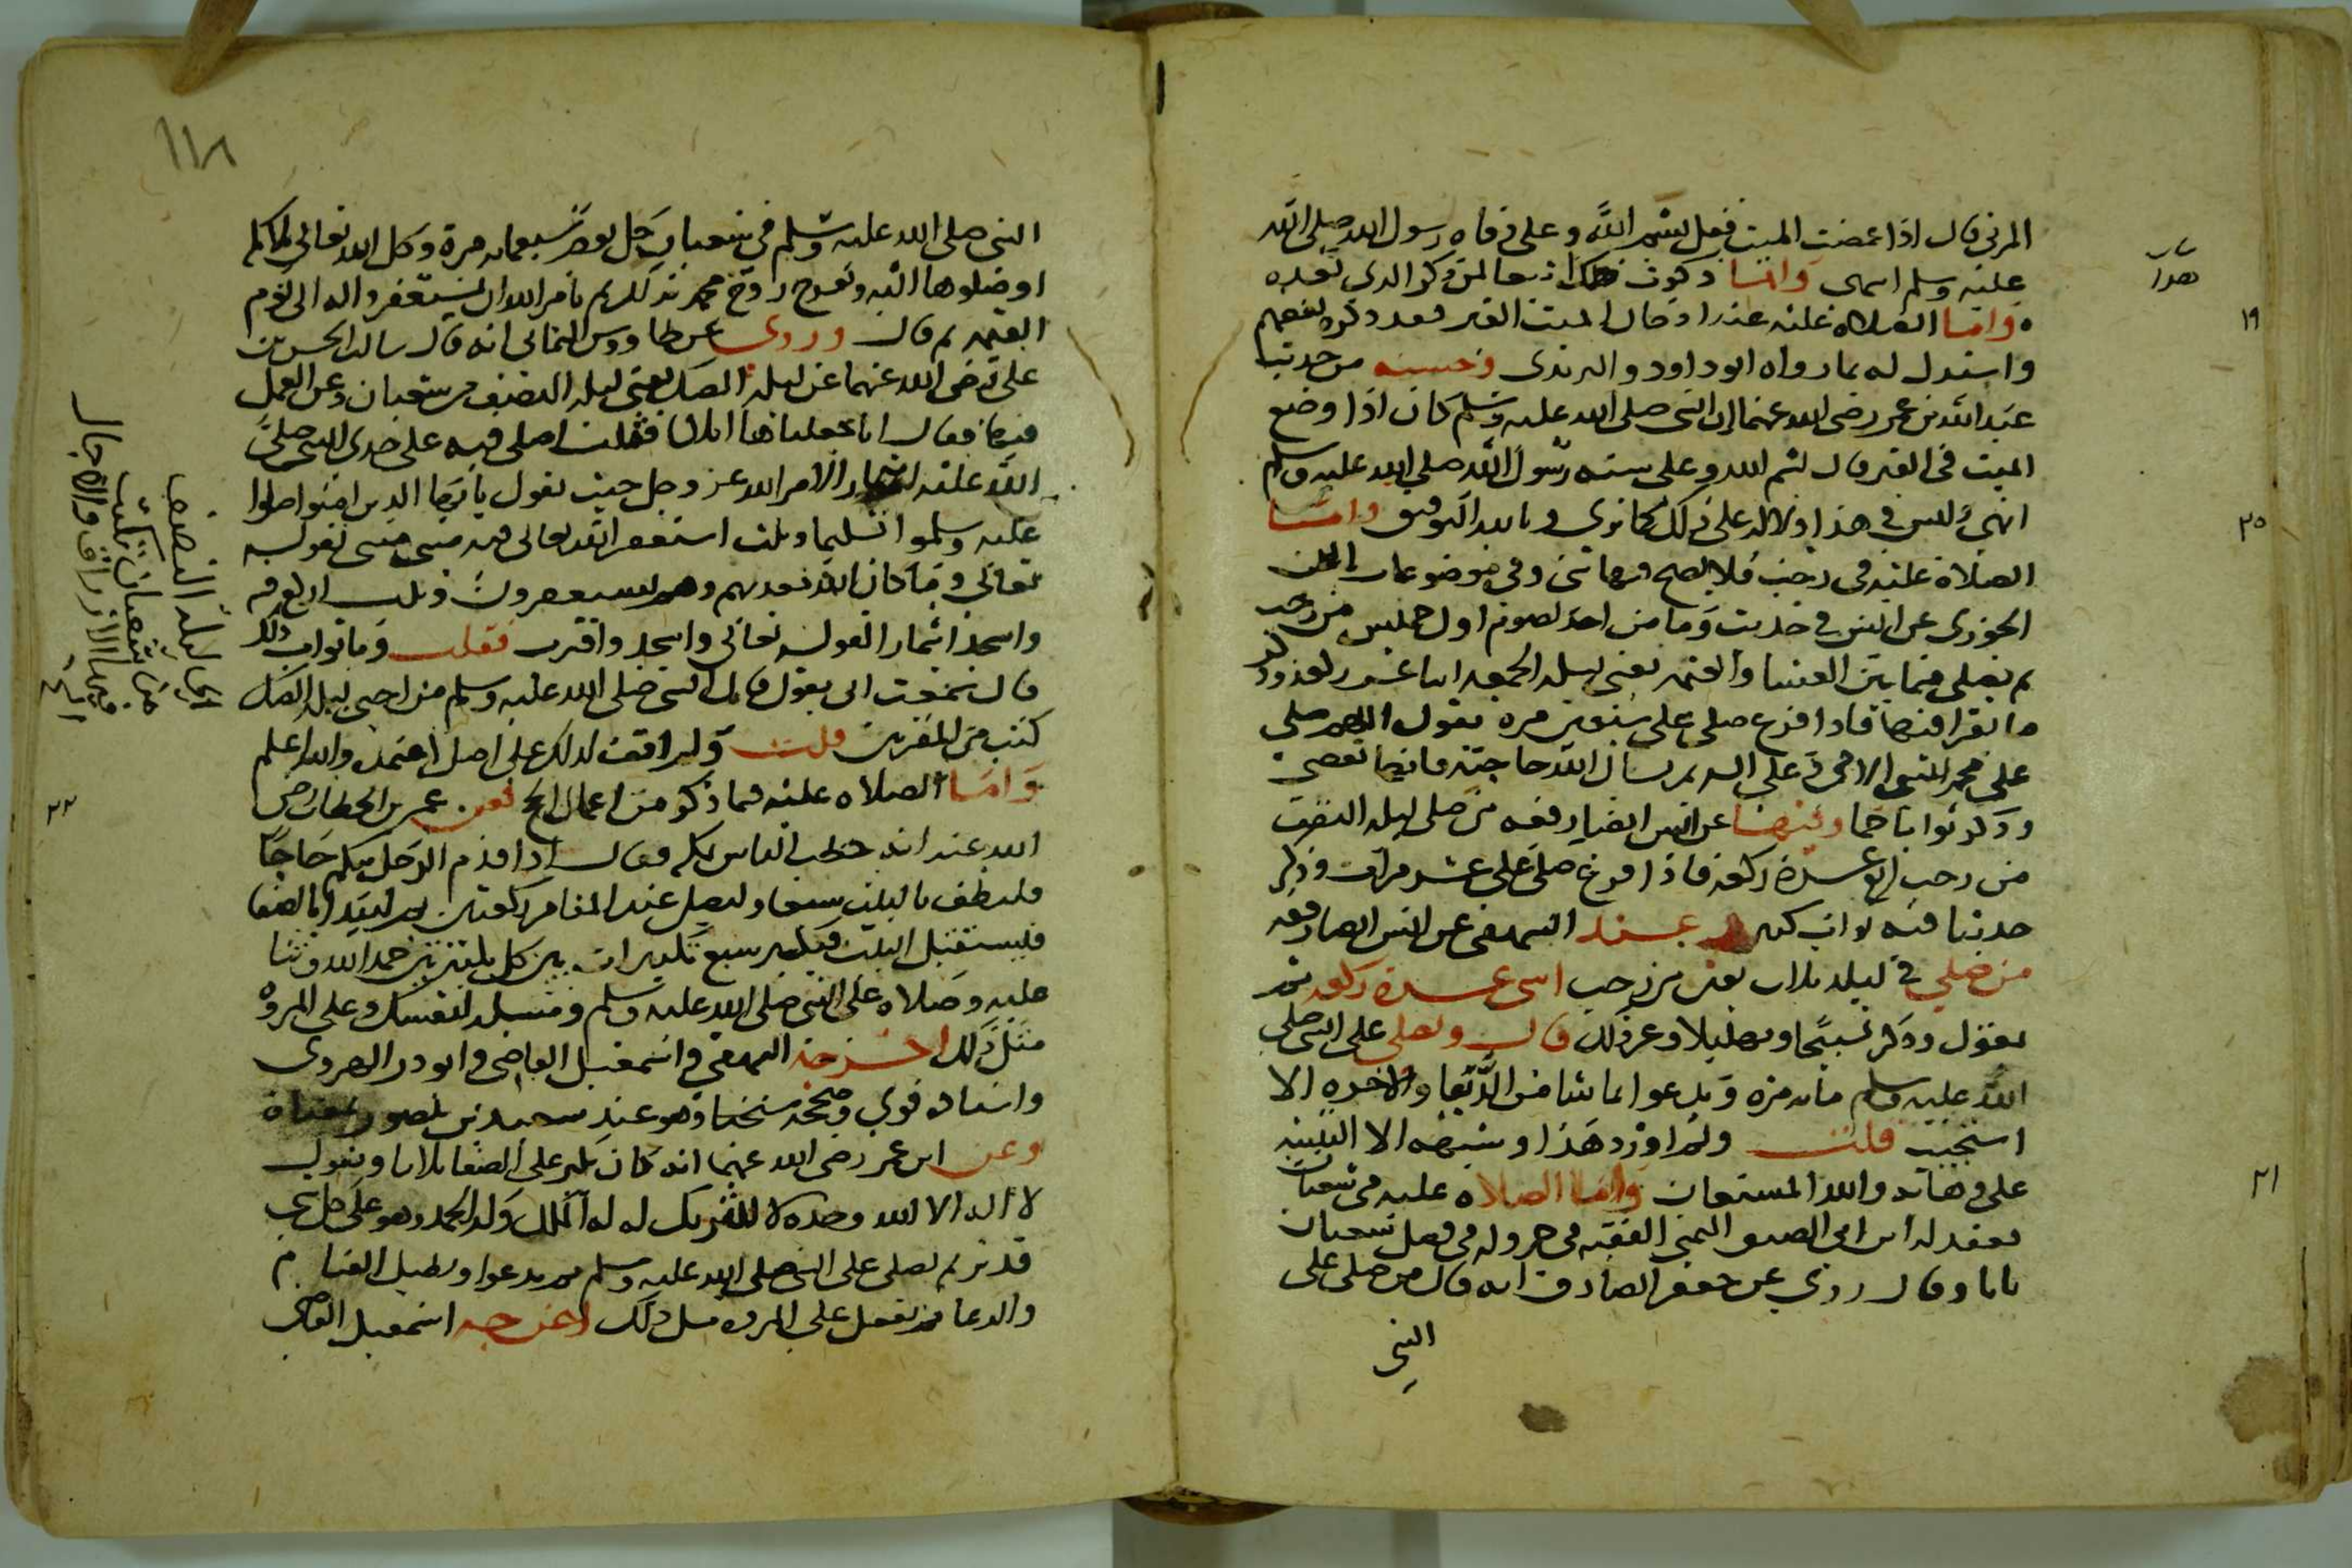 المزني قال اذا غمضت الميت فقل بسم الله وعلى وفاة رسول الله صلى الله
عليه وسلم انتهى وانما ذكرت هذا تبعا لمن ذكر الذي بعده
واما الصلاة عليه عند ادخال الميت القبر فقد ذكره بعضهم
واستدل له بما رواه ابو داود والترمذي وحسنه من حديث
عبد الله بن عمر رضي الله عنهما ان النبي صلى الله عليه وسلم كان اذا وضع
الميت في القبر قال بسم الله وعلى سنة رسول الله صلى الله عليه وسلم
انتهى وليس في هذا دلالة على ذلك كما ترى وبالله التوفيق واما
الصلاة عليه في رجب فلا يصح فيها شي وفي موضوعات ابن
الجوزي عن انس في حديث وما من احد يصوم اول خميس من رجب
ثم يصلي فيما بين العشا والعتمة يعني ليلة الجمعة اثنا عشر ركعة وذكر
ما يقرا فيها فاذا فرغ صلى علي سبعين مرة يقول اللهم صلي
على محمد النبي الامي وعلى اله ثم يسال الله حاجته فانها تقضى
وذكر ثوابا ضخما ومنها عن انس ايضا رفعه من صلى ليلة النصف
من رجب اربع عشرة ركعة فاذا فرغ صلى علي عشر مرات وذكر
حديثا فيه ثواب كبير وعند البيهقي عن انس ايضا رفعه
من صلى في ليلة ثلاث بقين من رجب اثني عشرة ركعة ثم
يقول وذكر تسبيحا وتهليلا وغير ذلك قال ويصلي على النبي صلى
الله عليه وسلم ماية مرة ويدعوا بما شا من الدنيا والاخرة الا
استجيب قلت ولم اورد هذا وشبهه الا التنبيه
على وهائه والله المستعان واما الصلاة عليه في شعبان
فعقد له ابن ابي الصيف اليمني الفقيه في جزو له في فضل شعبان
بابا وقال روي عن جعفر الصادق انه قال من صلى على
النبي
١٩
٢٠
٢١
١١٨
النبي صلى الله عليه وسلم في شعبان كل يوم سبعماية مرة وكل الله تعالى ملايكة
اوصلوها اليه وتفرح روح محمد بذلك ثم يامر الله ان يستغفروا له الى يوم
القيمة ثم قال وروى عن طاووس اليماني انه قال سالت الحسن بن
علي رضي الله عنهما عن ليلة الصك يعني ليلة النصف من شعبان وعن العمل
فيها فقال انا اجعلها اثلاثا فثلث اصلي فيه على جدي النبي صلى
الله عليه ايتمارا لامر الله عز وجل حيث يقول يا ايها الذين امنوا صلوا
عليه وسلموا تسليما وثلث استغفر الله تعالى فيه لقوله
تعالى وما كان الله معذبهم وهم يستغفرون وثلث اركع فيه
واسجد ايتمارا لقوله تعالى واسجد واقترب فقلت وما ثواب ذلك
قال سمعت ابي يقول قال النبي صلى الله عليه وسلم من احيى ليلة الصك
كتب من المقربين قلت ولم اقف لذلك على اصل اعتمده والله اعلم
واما الصلاة عليه فيما ذكر من اعمال الحج فعن عمر بن الخطاب رضي
الله عنه انه خطب الناس بمكة فقال اذا قدم الرجل منكم حاجا
فليطف بالبيت سبعا وليصل عند المقام ركعتين ثم ليبدا بالصفا
فيستقبل البيت فيكبر سبع تكبيرات بين كل تكبيرتين حمد الله وثنا
عليه وصلاة على النبي صلى الله عليه وسلم ومسيلة لنفسك وعلى المروة
مثل ذلك اخرجه البيهقي واسمعيل القاضي وابو ذر الهروي
واسناده قوي وصححه شيخنا وهو عند سعيد بن منصور بمعناه
وعن ابن عمر رضي الله عنهما انه كان يكبر على الصفا ثلاثا ويقول
لا اله الا الله وحده لا شريك له له الملك وله الحمد وهو على كل شي
قدير ثم يصلي على النبي صلى الله عليه وسلم ثم يدعوا ويطيل القيام
والدعا ثم يفعل على المروة مثل ذلك اخرجه اسمعيل القاضي
ليلة النصف
من شعبان تكتب
فيها الارزاق والاجال
٢٢